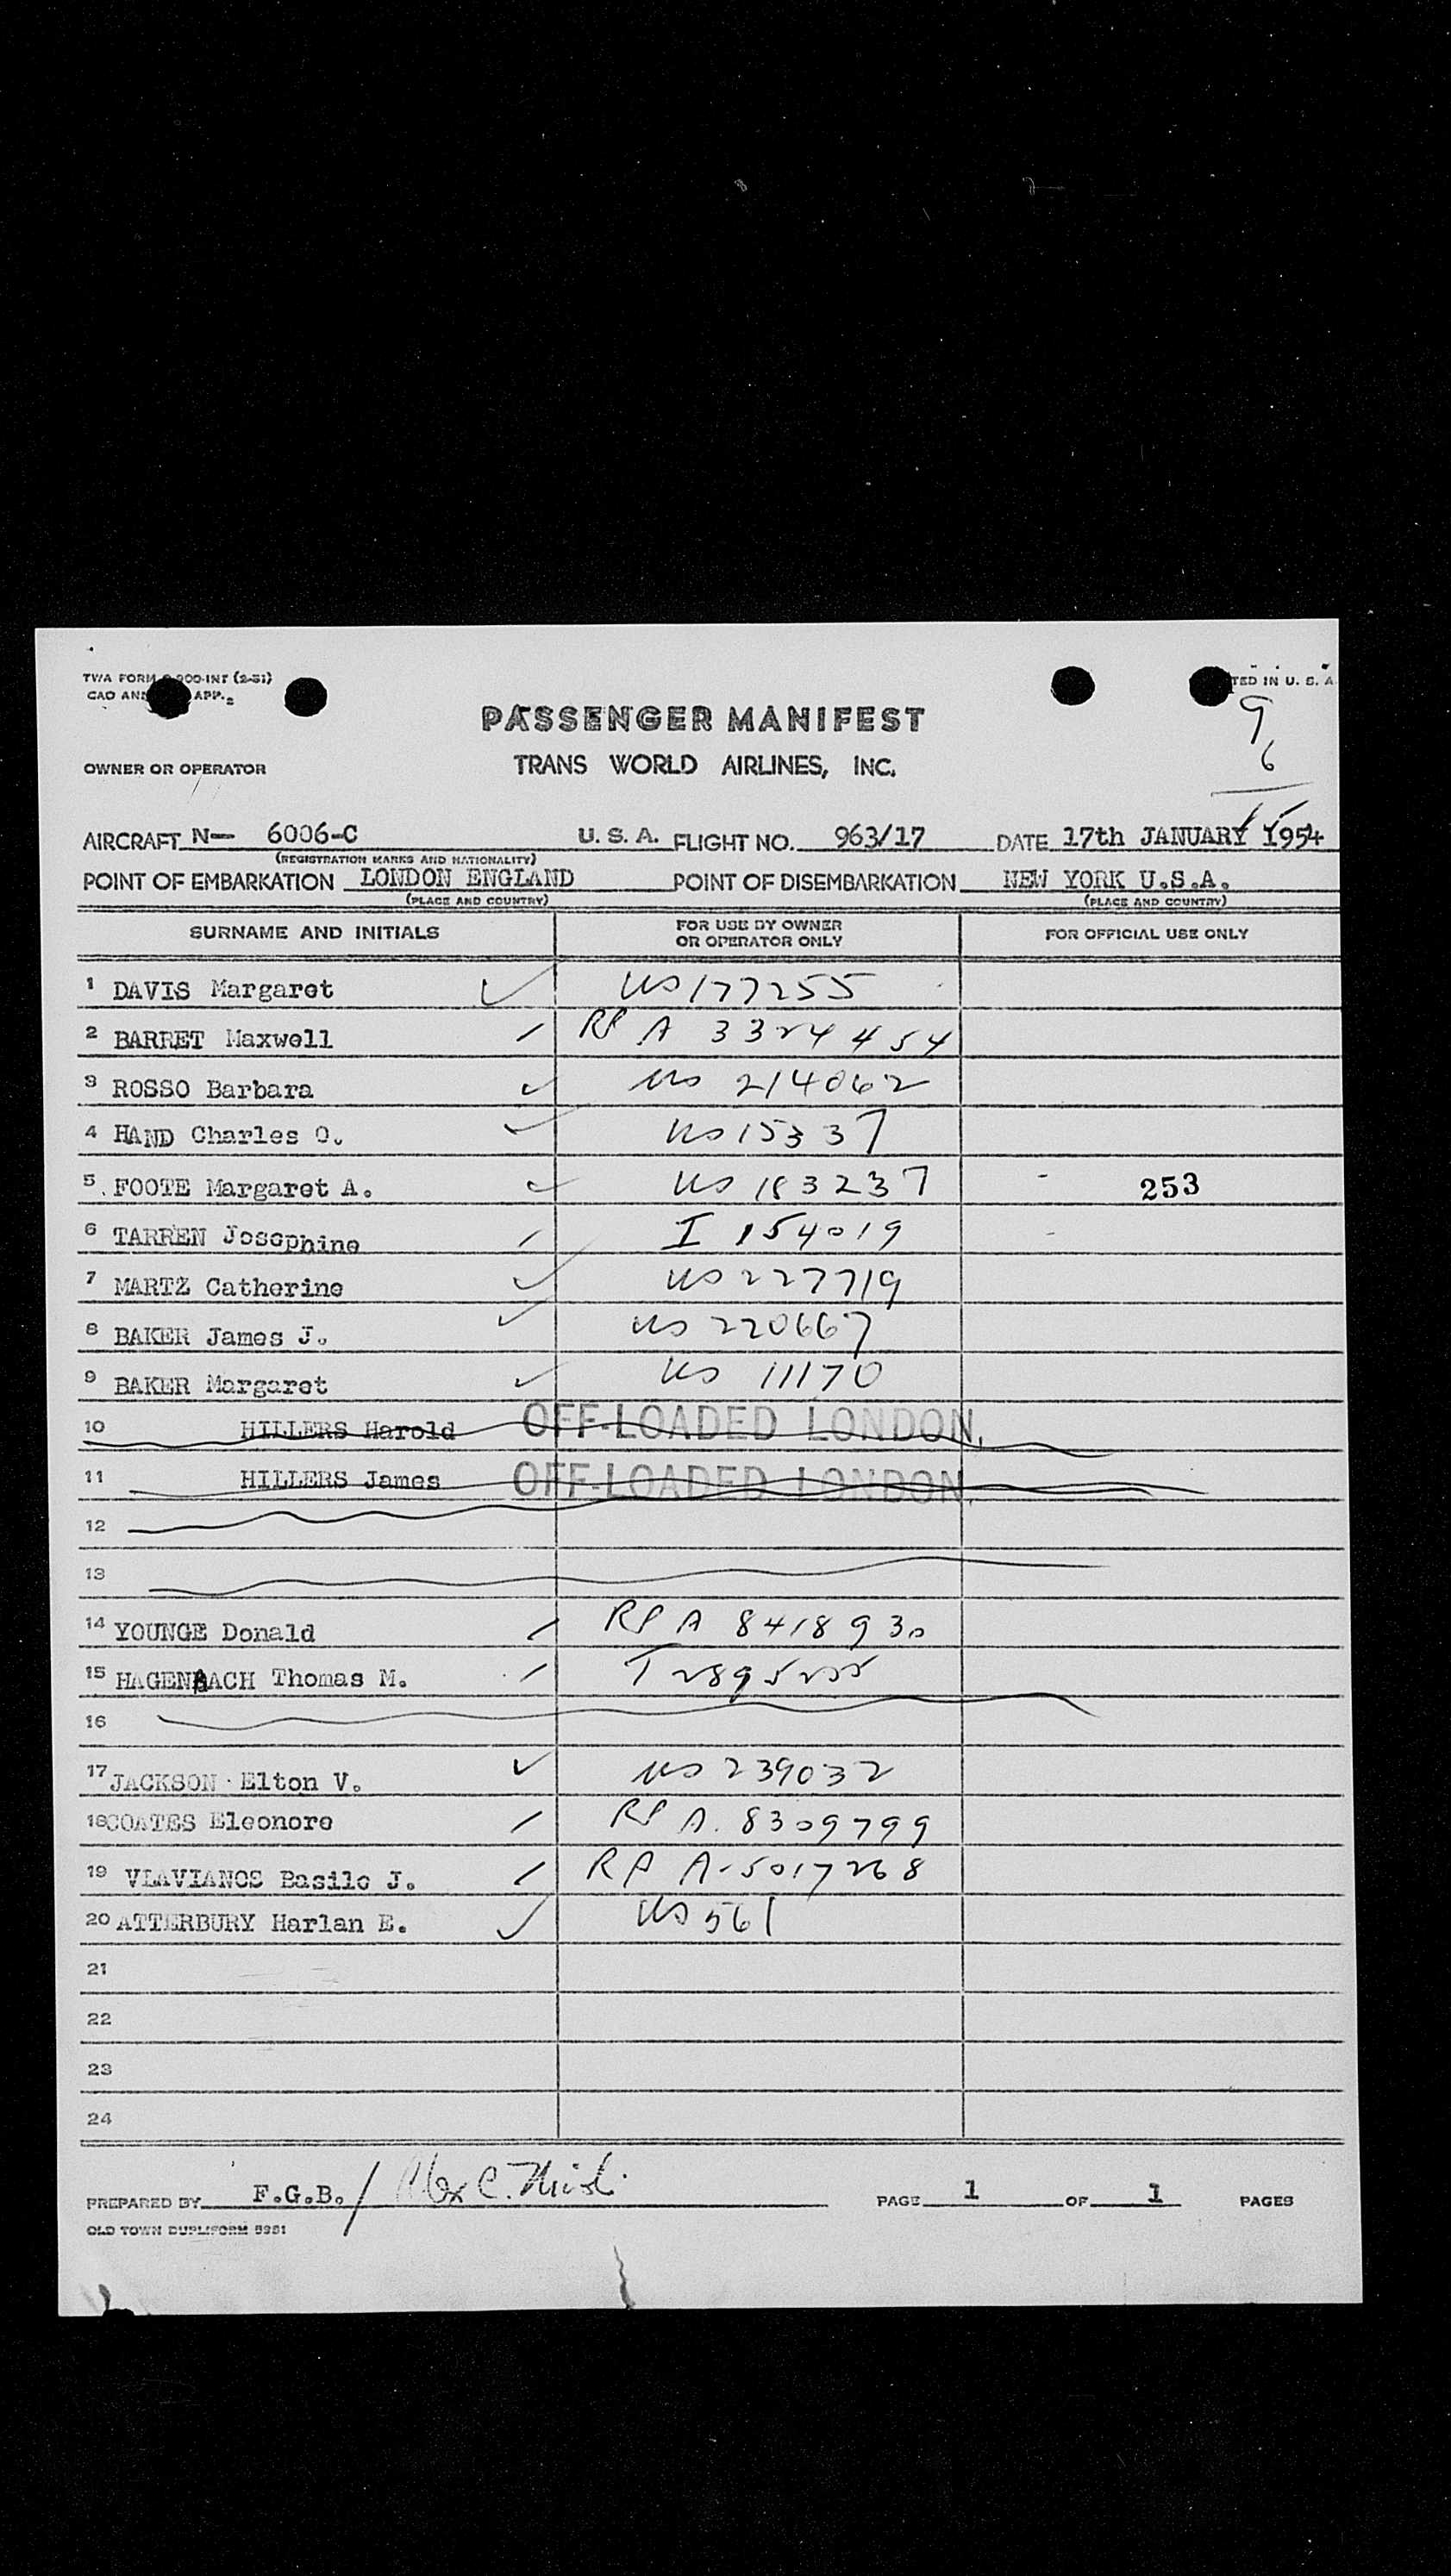 TWA FORM 900-INT (2-51)
CAO APP. 2
TED IN U. S. A.
PASSENGER MANIFEST
9
6
15
OWNER OR OPERATOR
TRANS WORLD AIRLINES, INC.
AIRCRAFT N- 6006-C U. S. A. FLIGHT NO. 963/17 DATE 17th JANUARY 1954
(REGISTRATION MARKS AND NATIONALITY)
POINT OF EMBARKATION LONDON ENGLAND POINT OF DISEMBARKATION NEW YORK U.S.A.
(PLACE AND COUNTRY) (PLACE AND COUNTRY)
SURNAME AND INITIALS FOR USE BY OWNER OR OPERATOR ONLY FOR OFFICIAL USE ONLY
1 DAVIS Margaret ✓ US 177255
2 BARRET Maxwell / RP A 3324454
3 ROSSO Barbara ✓ US 214062
4 HAND Charles O. ✓ US 15337
5 FOOTE Margaret A. ✓ US 183237 253
6 TARREN Josephine / I 154019
7 MARTZ Catherine ✓ US 227719
8 BAKER James J. ✓ US 220667
9 BAKER Margaret ✓ US 11170
10 HILLERS Harold OFF-LOADED LONDON.
11 HILLERS James OFF-LOADED LONDON.
12
13
14 YOUNGE Donald / RP A 8418930
15 HAGENBACH Thomas M. / T 2895255
16
17 JACKSON Elton V. ✓ US 239032
18 COATES Eleonore / RP A. 8309799
19 VLAVIANOS Basile J. / RP A-5017268
20 ATTERBURY Harlan E. ✓ US 561
21
22
23
24
PREPARED BY F.G.B. / Alex C. PAGE 1 OF 1 PAGES
OLD TOWN DUPLIFORM 5951